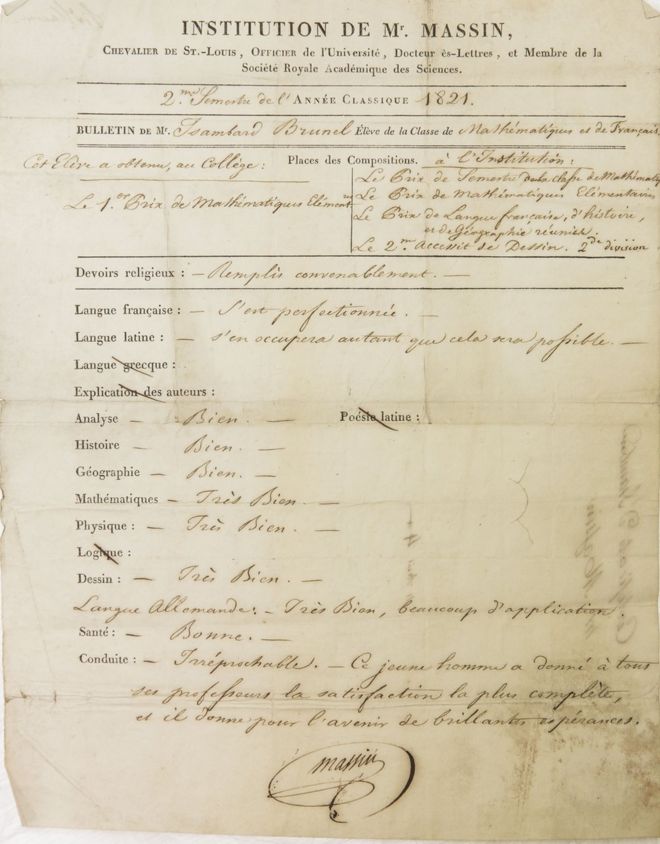 INSTITUTION DE Mr. MASSIN,
CHEVALIER DE ST.-LOUIS, OFFICIER de l'Université, Docteur ès-Lettres, et Membre de la
Société Royale Académique des Sciences.
2.me Semestre de l'ANNÉE CLASSIQUE 1821.
BULLETIN DE Mr. Isambard Brunel Élève de la Classe de Mathématiques et de Français
Cet Elève a obtenu, au Collège: Places des Compositions. à l'Institution:
Le Prix de Semestre de la Classe de Mathématiq
Le 1.er Prix de Mathématiques Elément.res Le Prix de Mathématiques Elémentaires
Le Prix de Langue française, d'histoire,
et de Géographie réunies.
Le 2.me Accessit de Dessin. 2.de division
Devoirs religieux : — Remplis convenablement. —
Langue française : — S'est perfectionnée. —
Langue latine : — s'en occupera autant que cela sera possible. —
Langue grecque :
Explication des auteurs :
Analyse — Bien. — Poésie latine :
Histoire — Bien. —
Géographie — Bien. —
Mathématiques — Très Bien. —
Physique : — Très Bien. —
Logique :
Dessin : — Très Bien. —
Langue Allemande: — Très Bien, beaucoup d'application.
Santé : — Bonne. —
Conduite : — Irréprochable. — Ce jeune homme a donné à tous
ses professeurs la satisfaction la plus complète,
et il donne pour l'avenir de brillantes espérances.
Massin